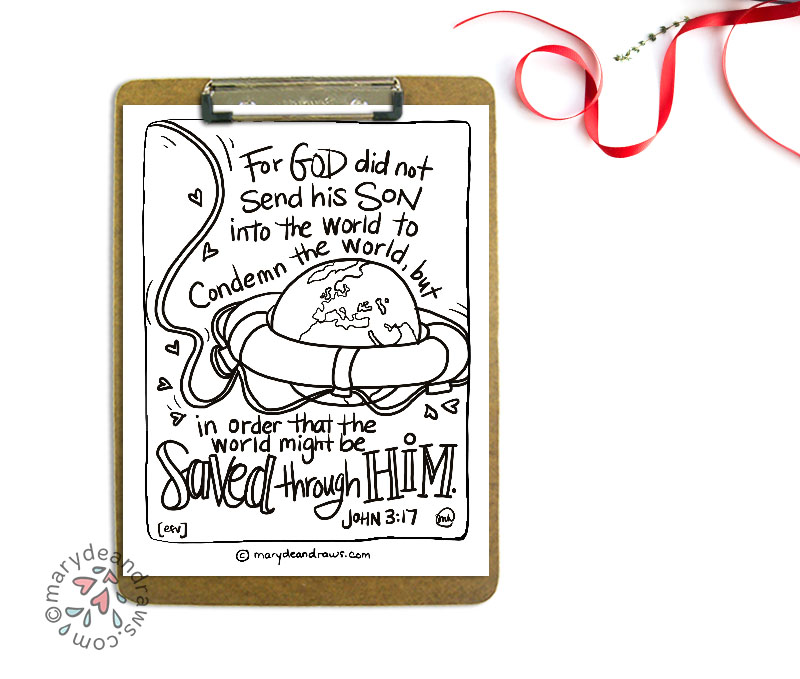 For GOD did not
Send his SON
into the world to
Condemn the world, but
in order that the
world might be
Saved through HiM.
JOHN 3:17
[esv]
© marydeandraws.com
©marydeandraws.com